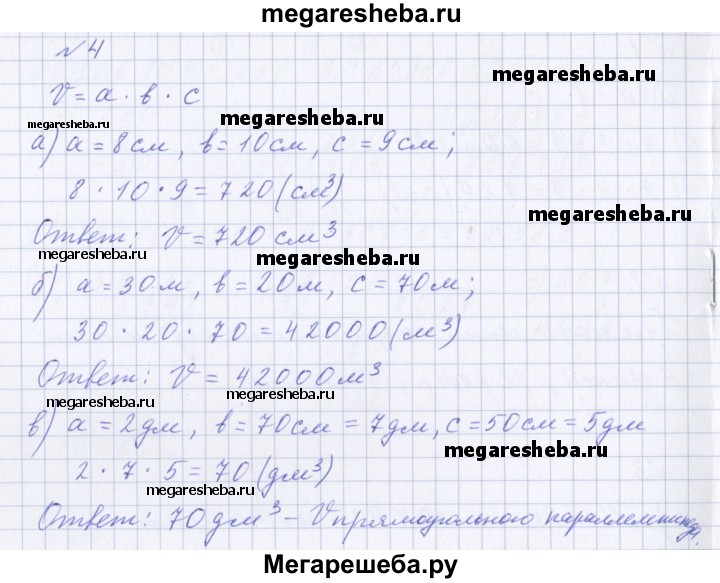 megaresheba.ru
№4
megaresheba.ru
V = a · b · c
megaresheba.ru
megaresheba.ru
а) a = 8 см, b = 10 см, c = 9 см;
8 · 10 · 9 = 720 (см³)
megaresheba.ru
Ответ: V = 720 см³
megaresheba.ru
megaresheba.ru
б) a = 30 м, b = 20 м, c = 70 м;
30 · 20 · 70 = 42000 (м³)
Ответ: V = 42000 м³
megaresheba.ru
megaresheba.ru
в) a = 2 дм, b = 70 см = 7 дм, c = 50 см = 5 дм
megaresheba.ru
2 · 7 · 5 = 70 (дм³)
megaresheba.ru
Ответ: 70 дм³ – V прямоугольного
Мегарешеба.ру